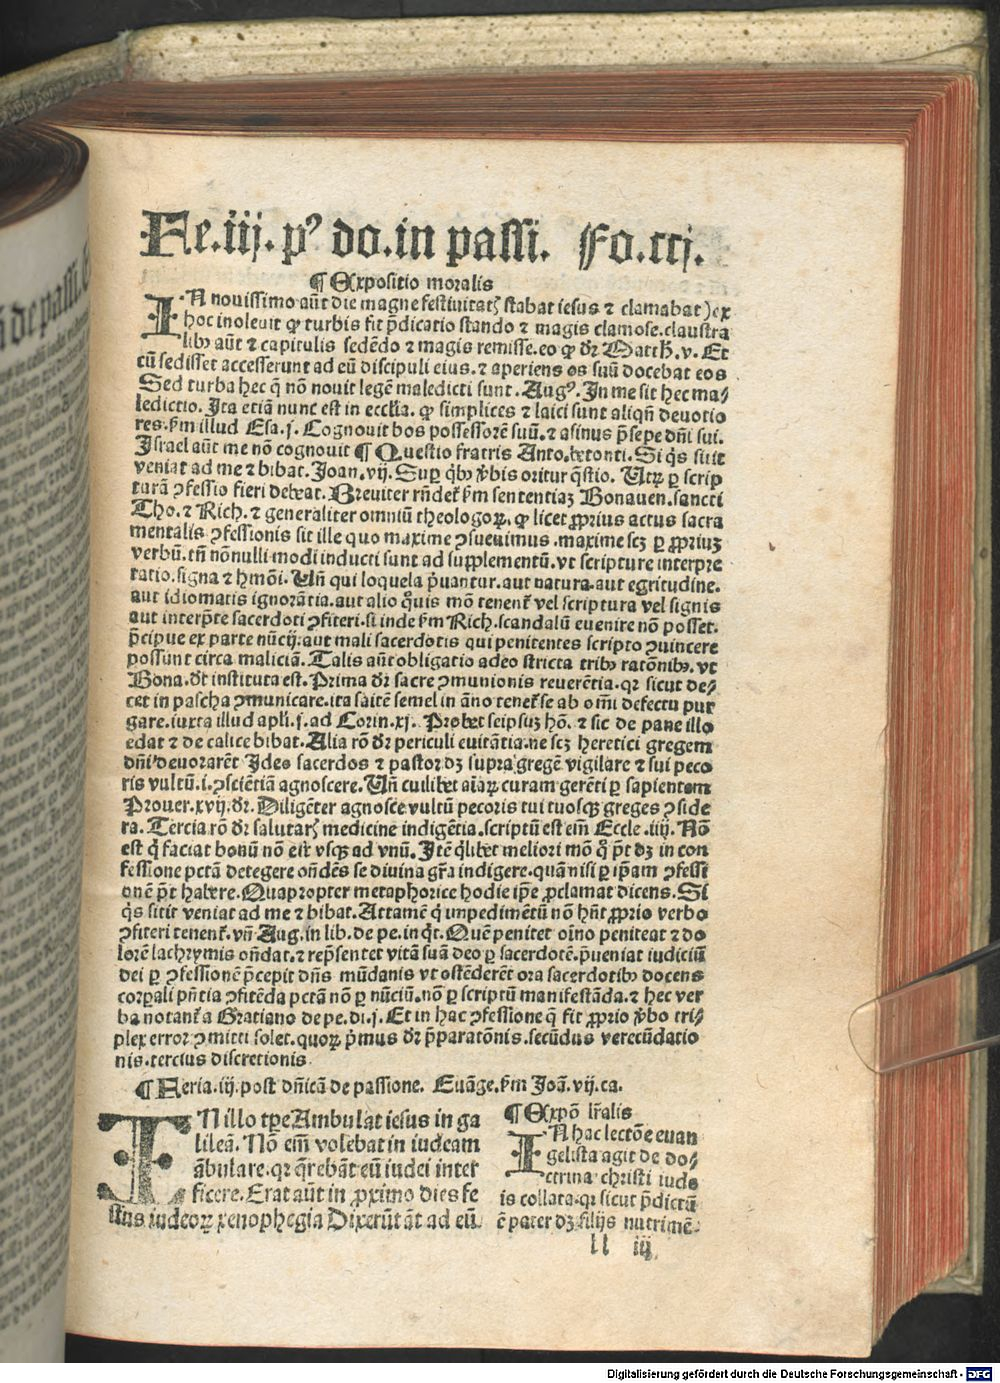 Fe.iij. pꝰ do.in passi. Fo.ccj.
¶ Expositio moralis
IN novissimo aūt die magne festivitatꝭ stabat iesus ⁊ clamabat) ex
hoc inolevit ꝙ turbis fit p̄dicatio stando ⁊ magis clamose. claustra
libꝰ aūt ⁊ capitulis sedēdo ⁊ magis remisse. eo ꝙ dr̄ Matth̄. v. Et
cū sedisset accesserunt ad eū discipuli eius. ⁊ aperiens os suū docebat eos
Sed turba hec q̄ nō novit legē maledicti sunt. Augꝰ. In me sit hec ma/
ledictio. Ita etiā nunc est in eccl̄ia. ꝙ simplices ⁊ laici sunt aliqn̄ devotio
res. ẜm illud Esa. j. Cognovit bos possessorē suū. ⁊ asinus p̄sepe dn̄i sui.
Israel aūt me nō cognovit ¶ Questio fratris Anto. betonti. Si q̇s sitit
veniat ad me ⁊ bibat. Joan. vij. Suꝑ q̇bꝰ v̄bis oritur q̄stio. Utꝝ ꝑ scrip
turā ꝯfessio fieri debeat. Breviter rn̄det̄ ẜm sententiaꝫ Bonaven. sancti
Tho. ⁊ Rich. ⁊ generaliter omniū theologoꝝ. ꝙ licet ꝓprius actus sacra
mentalis ꝯfessionis sit ille quo maxime ꝯsuevimus. maxime scꝫ ꝑ ꝓpriuꝫ
verbū. tn̄ nōnulli modi inducti sunt ad supplementū. vt scripture interpre
tatio. signa ⁊ hmōi. Un̄ qui loquela p̄vantur. aut natura. aut egritudine.
aut idiomatis ignorātia. aut alio q̊uis mō tenent̄ vel scriptura vel signis
aut interp̄te sacerdoti ꝯfiteri. si inde ẜm Rich. scandalū evenire nō posset.
p̄cipue ex parte nūcij. aut mali sacerdotis qui penitentes scripto ꝯvincere
possunt circa maliciā. Talis aūt obligatio adeo stricta tribꝰ ratōnibꝰ. vt
Bona. dt̄ instituta est. Prima dr̄ sacre ꝯmunionis reverētia. qꝛ sicut de/
cet in pascha ꝯmunicare. ita saltē semel in āno tenet̄ se ab om̄i defectu pur
gare. iuxta illud apl̄i. j. ad Corin. xj. Probet seipsuꝫ hō. ⁊ sic de pane illo
edat ⁊ de calice bibat. Alia rō dr̄ periculi evitātia. ne scꝫ heretici gregem
dn̄i devorarēt Ideo sacerdos ⁊ pastor dꝫ supra gregē vigilare ⁊ sui peco
ris vultū. i. ꝯsciētiā agnoscere. Un̄ cuilibet aīaꝝ curam gerēti ꝑ sapientem
Prover. xvij. dr̄. Diligēter agnosce vultū pecoris tui tuosqꝫ greges ꝯside
ra. Tercia rō dr̄ salutarꝭ medicine indigētia. scriptū est em̄ Eccle. iiij. Nō
est q̇ faciat bonū nō est vsqꝫ ad vnū. Itē q̇libet meliori mō q̊ p̄t dꝫ in con
fessione pctā detegere ondēs se divina gr̄a indigere. quā nisi ꝑ ip̄am ꝯfessi
onē p̄t habere. Quapropter metaphorice hodie ip̄e ꝓclamat dicens. Si
q̇s sitit veniat ad me ⁊ bibat. Attamē q̇ impedimētū nō hn̄t ꝓprio verbo
ꝯfiteri tenent̄. vn̄ Aug. in lib. de pe. inq̇t. Quē penitet oīno peniteat ⁊ do
lorē lachrymis on̄dat. ⁊ rep̄sentet vitā suā deo ꝑ sacerdotē. p̄veniat iudiciū
dei ꝑ ꝯfessionē p̄cepit dn̄s mūdanis vt ostēderēt ora sacerdotibꝰ docens
corꝑali pn̄tia ꝯfitēda pctā nō ꝑ nūciū. nō ꝑ scriptū manifestāda. ⁊ hec ver
ba notant̄ a Gratiano de pe. di. j. Et in hac ꝯfessione q̄ fit ꝓprio v̄bo tri/
plex error ꝯmitti solet. quoꝝ p̄mus dr̄ p̄paratōnis. secūdus verecūdatio
nis. tercius discretionis
¶ Feria. iij. post dn̄icā de passione. Euāge. ẜm Joā. vij. ca.
IN illo tꝑe Ambulat iesus in ga
lileā. Nō em̄ volebat in iudeam
ābulare. qꝛ q̄rebāt eū iudei inter
ficere. Erat aūt in ꝓximo dies fe
stus iudeoꝝ xenophegia Dixerūt āt ad eū.
¶ Expō lr̄alis
IN hac lectōe evan
gelista agit de do/
ctrina christi iude
is collata. qꝛ sicut p̄dictū
ē pater dꝫ filijs nutrimē
ll iij
Digitalisierung gefördert durch die Deutsche Forschungsgemeinschaft - DFG